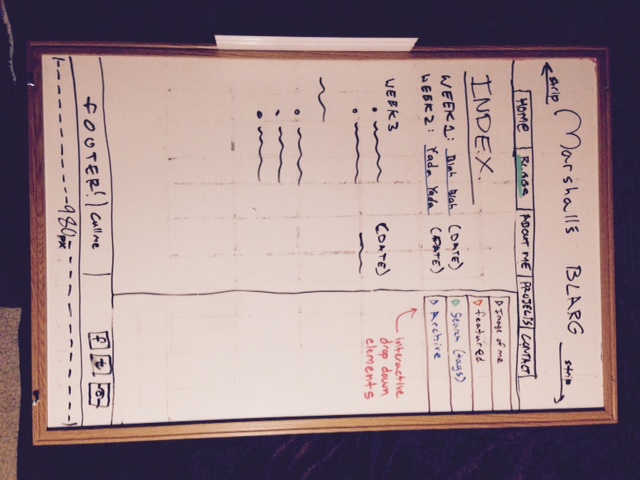 Marshalls BLARG
strip
strip
HOME BLARG ABOUT ME PROJECTS CONTACT
INDEX
WEEK 1: Blah Blah (DATE)
WEEK 2: Yada Yada (DATE)
WEEK 3 (DATE)
Image of me
featured
Search (tags)
Archive
interactive
drop down
elements
fOOTER! Call me
f t
980px